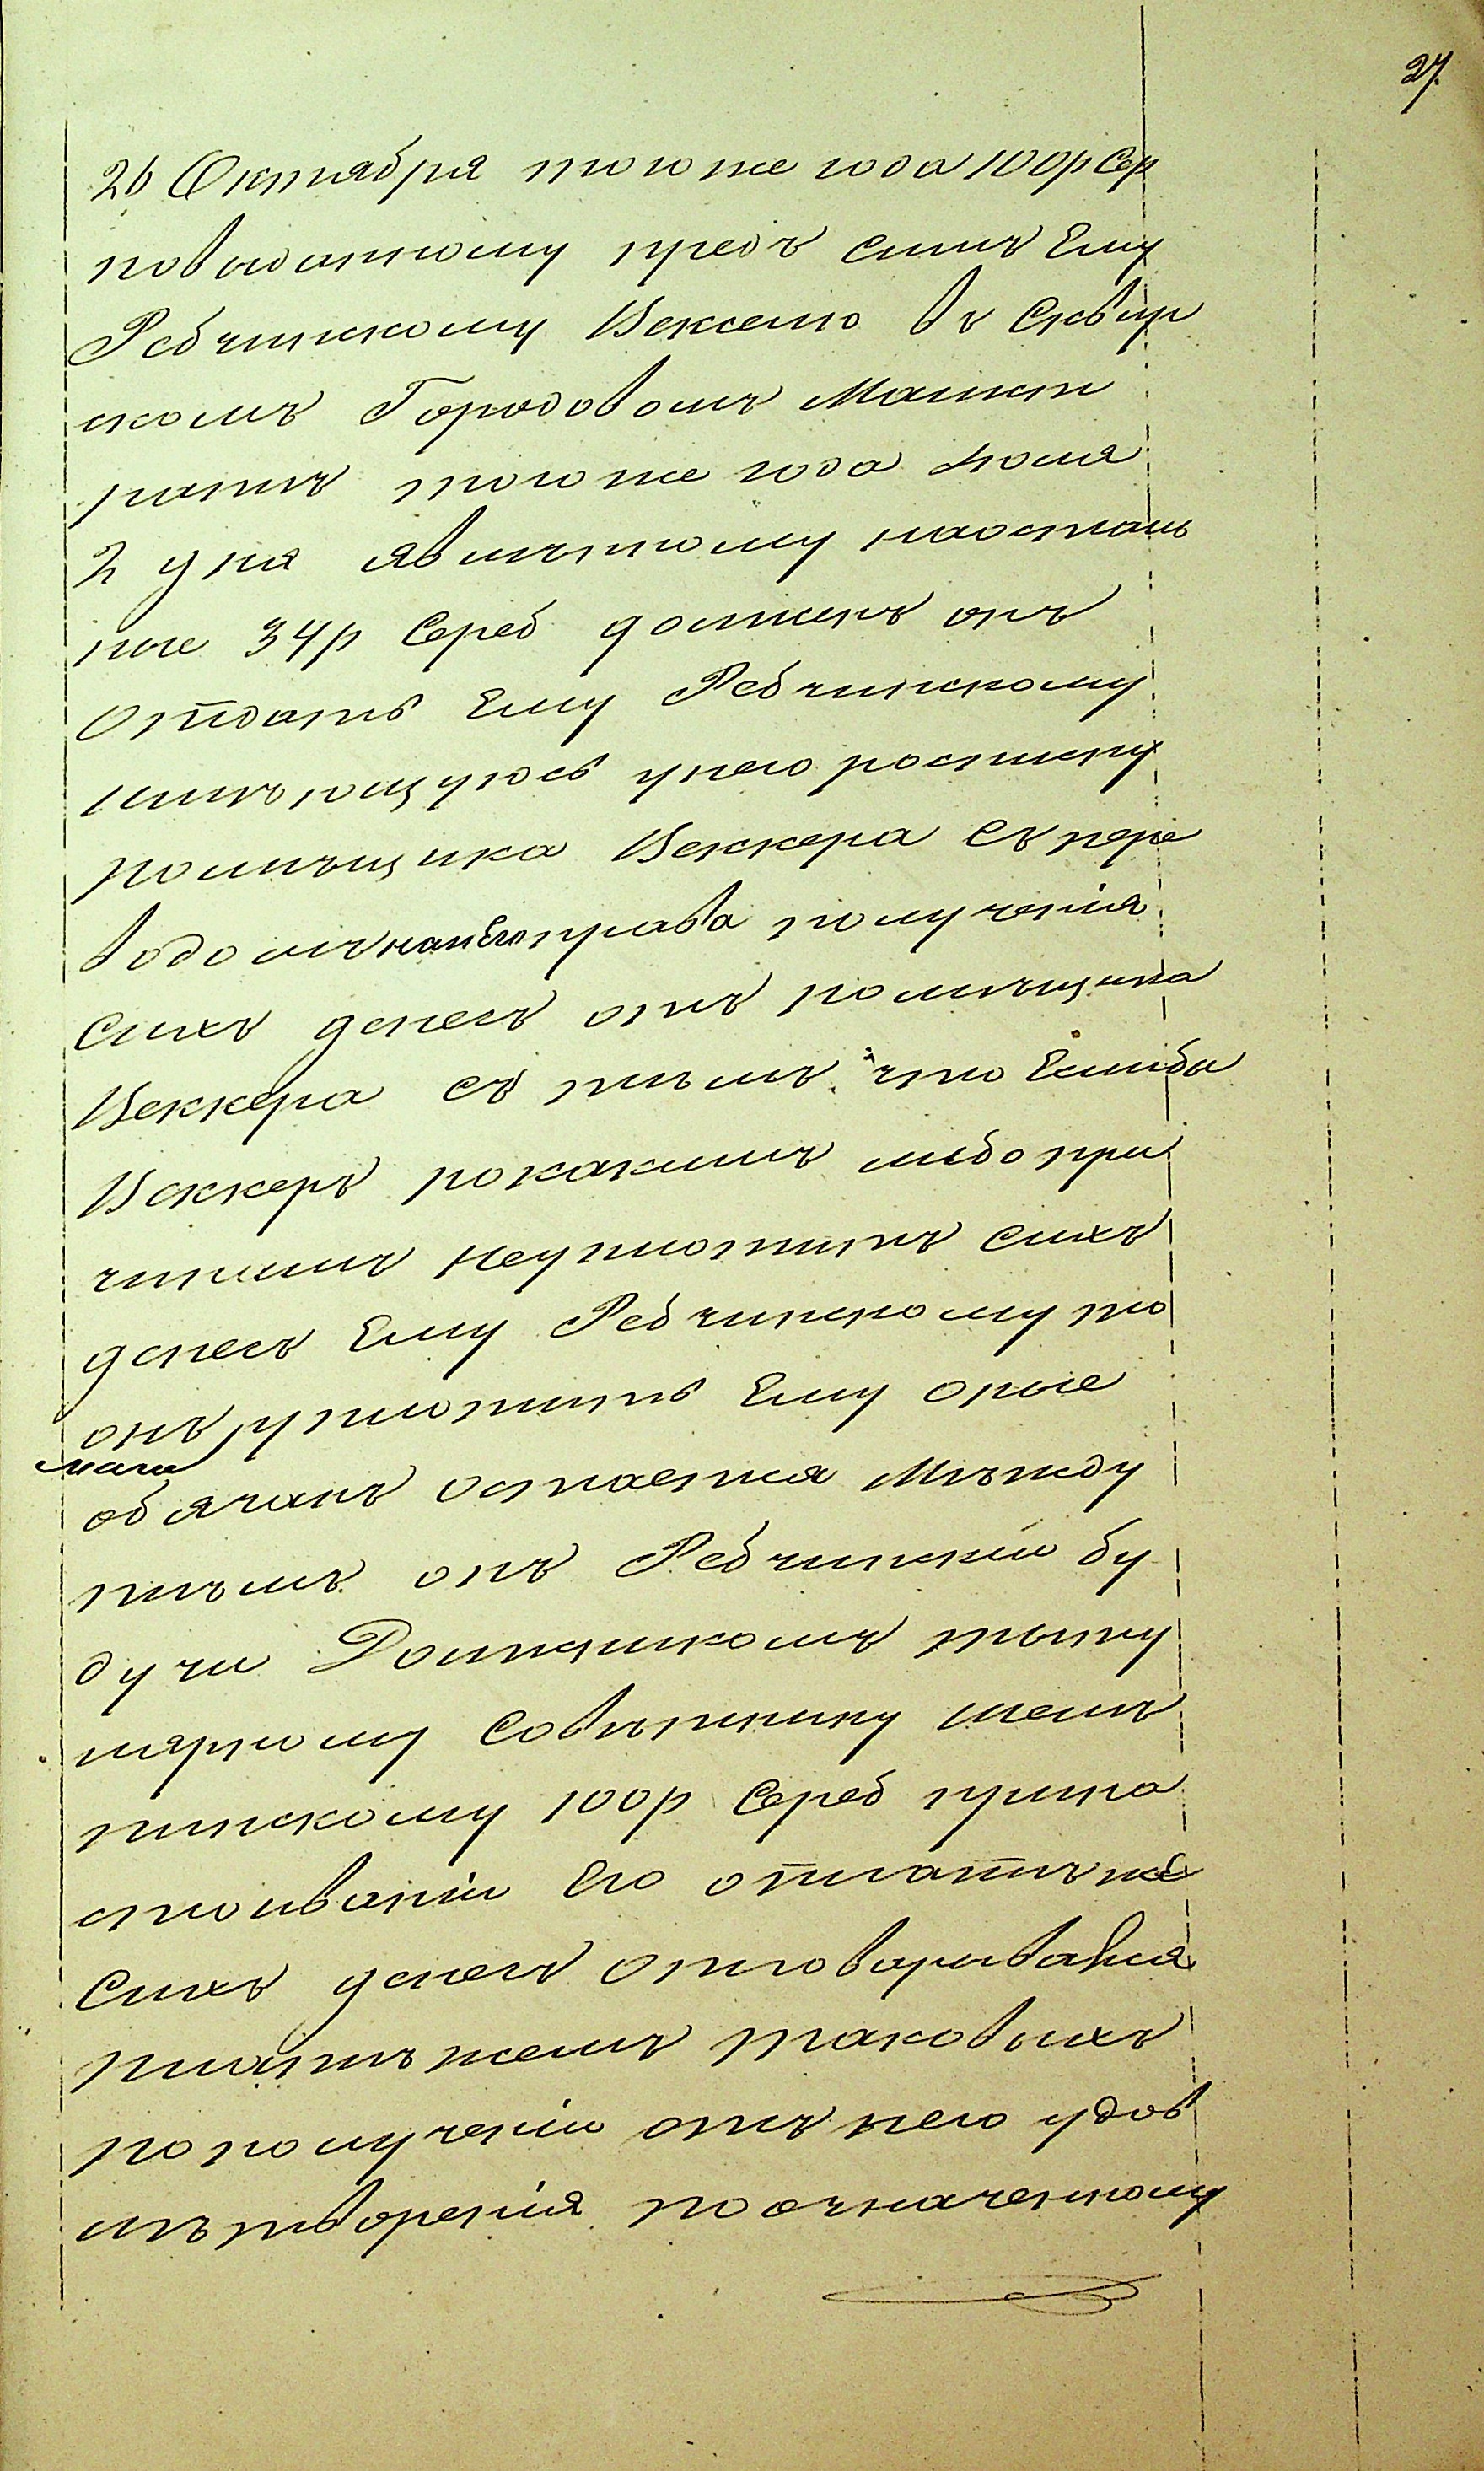 27.
26 Октября того же года 100р Сер
повыданному предъ симъ Ему
Ребчинскому Векселю въ Сквир
скомъ Городовомъ Магист
ратъ того же года Июля
2 дня явленному наосталь
ные 34р Сереб долженъ онъ
Отдать Ему Ребчинскому
имѣющуюсь унего росписку
помѣщика Веккера съ пере
водомъ наНего права полученія
Сихъ денегъ отъ помѣщика
Веккера съ тѣмъ что Еслибы
Веккеръ покакимъ либо при
чинамъ неуплотитъ сихъ
денегъ Ему Ребчинскому то
онъ уплотить Ему оные
самъ
обязанъ остается Мѣжду
тѣмъ онъ Ребчинскій бу
дучи Должникомъ титу
лярному Совѣтнику
100р Сереб прина
стоиваніи Его оплатѣжѣ
Сихъ денегъ отговаровался
платѣжемъ таковыхъ
пополученіи отъ него удов
лѣтворенія поозначенному